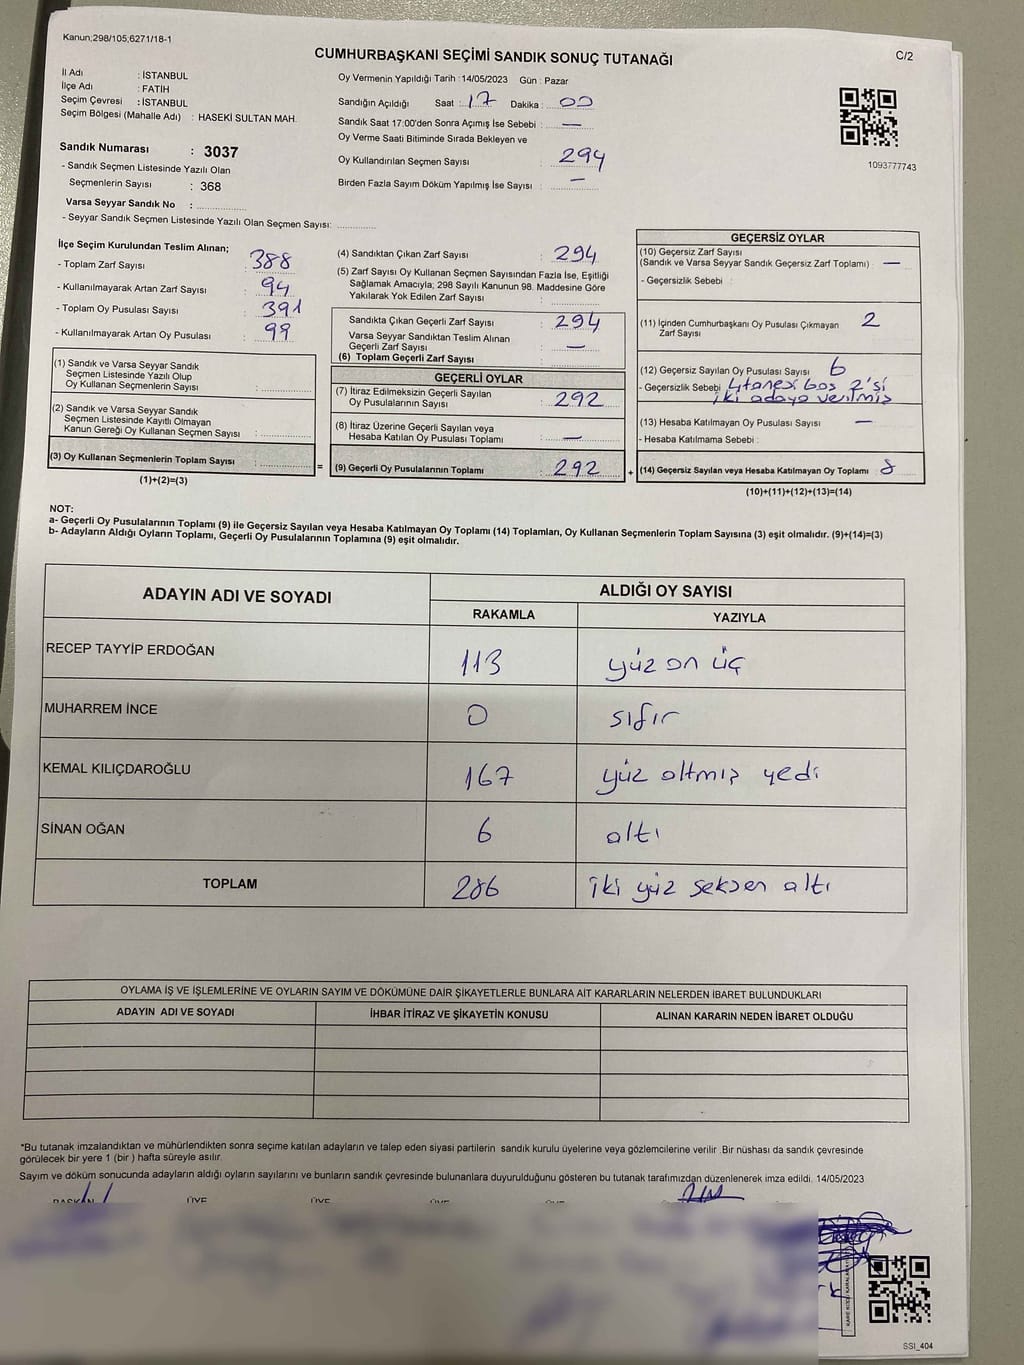 Kanun;298/105;6271/18-1
C/2
CUMHURBAŞKANI SEÇİMİ SANDIK SONUÇ TUTANAĞI
İl Adı : İSTANBUL
İlçe Adı : FATİH
Seçim Çevresi : İSTANBUL
Seçim Bölgesi (Mahalle Adı) : HASEKİ SULTAN MAH.
Sandık Numarası : 3037
- Sandık Seçmen Listesinde Yazılı Olan
Seçmenlerin Sayısı : 368
Varsa Seyyar Sandık No :
- Seyyar Sandık Seçmen Listesinde Yazılı Olan Seçmen Sayısı:
Oy Vermenin Yapıldığı Tarih : 14/05/2023 Gün : Pazar
Sandığın Açıldığı Saat : 17 Dakika : 00
Sandık Saat 17:00'den Sonra Açımış İse Sebebi : —
Oy Verme Saati Bitiminde Sırada Bekleyen ve
Oy Kullandırılan Seçmen Sayısı : 294
Birden Fazla Sayım Döküm Yapılmış İse Sayısı : —
1093777743
İlçe Seçim Kurulundan Teslim Alınan;
- Toplam Zarf Sayısı : 388
- Kullanılmayarak Artan Zarf Sayısı : 94
- Toplam Oy Pusulası Sayısı : 391
- Kullanılmayarak Artan Oy Pusulası : 99
(1) Sandık ve Varsa Seyyar Sandık
Seçmen Listesinde Yazılı Olup
Oy Kullanan Seçmenlerin Sayısı :
(2) Sandık ve Varsa Seyyar Sandık
Seçmen Listesinde Kayıtlı Olmayan
Kanun Gereği Oy Kullanan Seçmen Sayısı :
(3) Oy Kullanan Seçmenlerin Toplam Sayısı :
(1)+(2)=(3)
=
(4) Sandıktan Çıkan Zarf Sayısı : 294
(5) Zarf Sayısı Oy Kullanan Seçmen Sayısından Fazla İse, Eşitliği
Sağlamak Amacıyla; 298 Sayılı Kanunun 98. Maddesine Göre
Yakılarak Yok Edilen Zarf Sayısı :
Sandıkta Çıkan Geçerli Zarf Sayısı : 294
Varsa Seyyar Sandıktan Teslim Alınan
Geçerli Zarf Sayısı : —
(6) Toplam Geçerli Zarf Sayısı :
GEÇERLİ OYLAR
(7) İtiraz Edilmeksizin Geçerli Sayılan
Oy Pusulalarının Sayısı : 292
(8) İtiraz Üzerine Geçerli Sayılan veya
Hesaba Katılan Oy Pusulası Toplamı : —
(9) Geçerli Oy Pusulalarının Toplamı : 292
+
GEÇERSİZ OYLAR
(10) Geçersiz Zarf Sayısı
(Sandık ve Varsa Seyyar Sandık Geçersiz Zarf Toplamı) : —
- Geçersizlik Sebebi :
(11) İçinden Cumhurbaşkanı Oy Pusulası Çıkmayan 2
Zarf Sayısı
(12) Geçersiz Sayılan Oy Pusulası Sayısı : 6
- Geçersizlik Sebebi 4 tanesi boş 2'si
iki adaya verilmiş
(13) Hesaba Katılmayan Oy Pusulası Sayısı : —
- Hesaba Katılmama Sebebi :
(14) Geçersiz Sayılan veya Hesaba Katılmayan Oy Toplamı : 8
(10)+(11)+(12)+(13)=(14)
NOT:
a- Geçerli Oy Pusulalarının Toplamı (9) ile Geçersiz Sayılan veya Hesaba Katılmayan Oy Toplamı (14) Toplamları, Oy Kullanan Seçmenlerin Toplam Sayısına (3) eşit olmalıdır. (9)+(14)=(3)
b- Adayların Aldığı Oyların Toplamı, Geçerli Oy Pusulalarının Toplamına (9) eşit olmalıdır.
ADAYIN ADI VE SOYADI ALDIĞI OY SAYISI
RAKAMLA YAZIYLA
RECEP TAYYİP ERDOĞAN 113 yüz on üç
MUHARREM İNCE 0 sıfır
KEMAL KILIÇDAROĞLU 167 yüz altmış yedi
SİNAN OĞAN 6 altı
TOPLAM 286 iki yüz seksen altı
OYLAMA İŞ VE İŞLEMLERİNE VE OYLARIN SAYIM VE DÖKÜMÜNE DAİR ŞİKAYETLERLE BUNLARA AİT KARARLARIN NELERDEN İBARET BULUNDUKLARI
ADAYIN ADI VE SOYADI İHBAR İTİRAZ VE ŞİKAYETİN KONUSU ALINAN KARARIN NEDEN İBARET OLDUĞU
*Bu tutanak imzalandıktan ve mühürlendikten sonra seçime katılan adayların ve talep eden siyasi partilerin sandık kurulu üyelerine veya gözlemcilerine verilir .Bir nüshası da sandık çevresinde
görülecek bir yere 1 (bir ) hafta süreyle asılır.
Sayım ve döküm sonucunda adayların aldığı oyların sayılarını ve bunların sandık çevresinde bulunanlara duyurulduğunu gösteren bu tutanak tarafımızdan düzenlenerek imza edildi. 14/05/2023
BAŞKAN ÜYE ÜYE ÜYE ÜYE
SSI_404